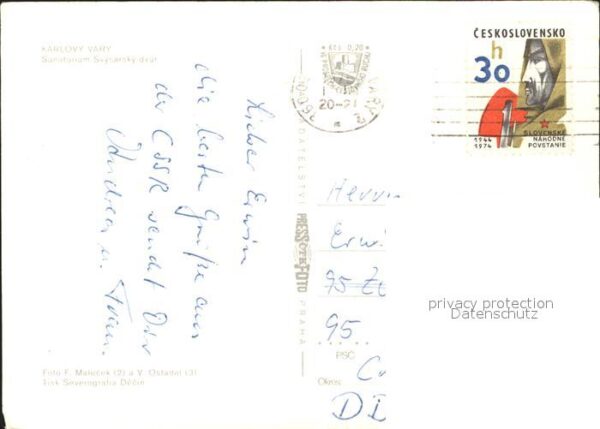 KARLOVY VARY
Sanatorium Švýcarský dvůr
Lieber Erwin
die besten Grüße aus
der CSSR sendet Dir
Andrea u. Fam.
Foto F. Maleček (2) a V. Ostádal (3)
Tisk Severografia Děčín
VYDAVATELSTVÍ
PRESSFOTO
PRAHA
Kčs 0,20
20-21
ČESKOSLOVENSKO
30 h
1944
1974
SLOVENSKÉ
NÁRODNÉ
POVSTANIE
Herrn
Erwi
95
95
PSČ
Okres
privacy protection
Datenschutz